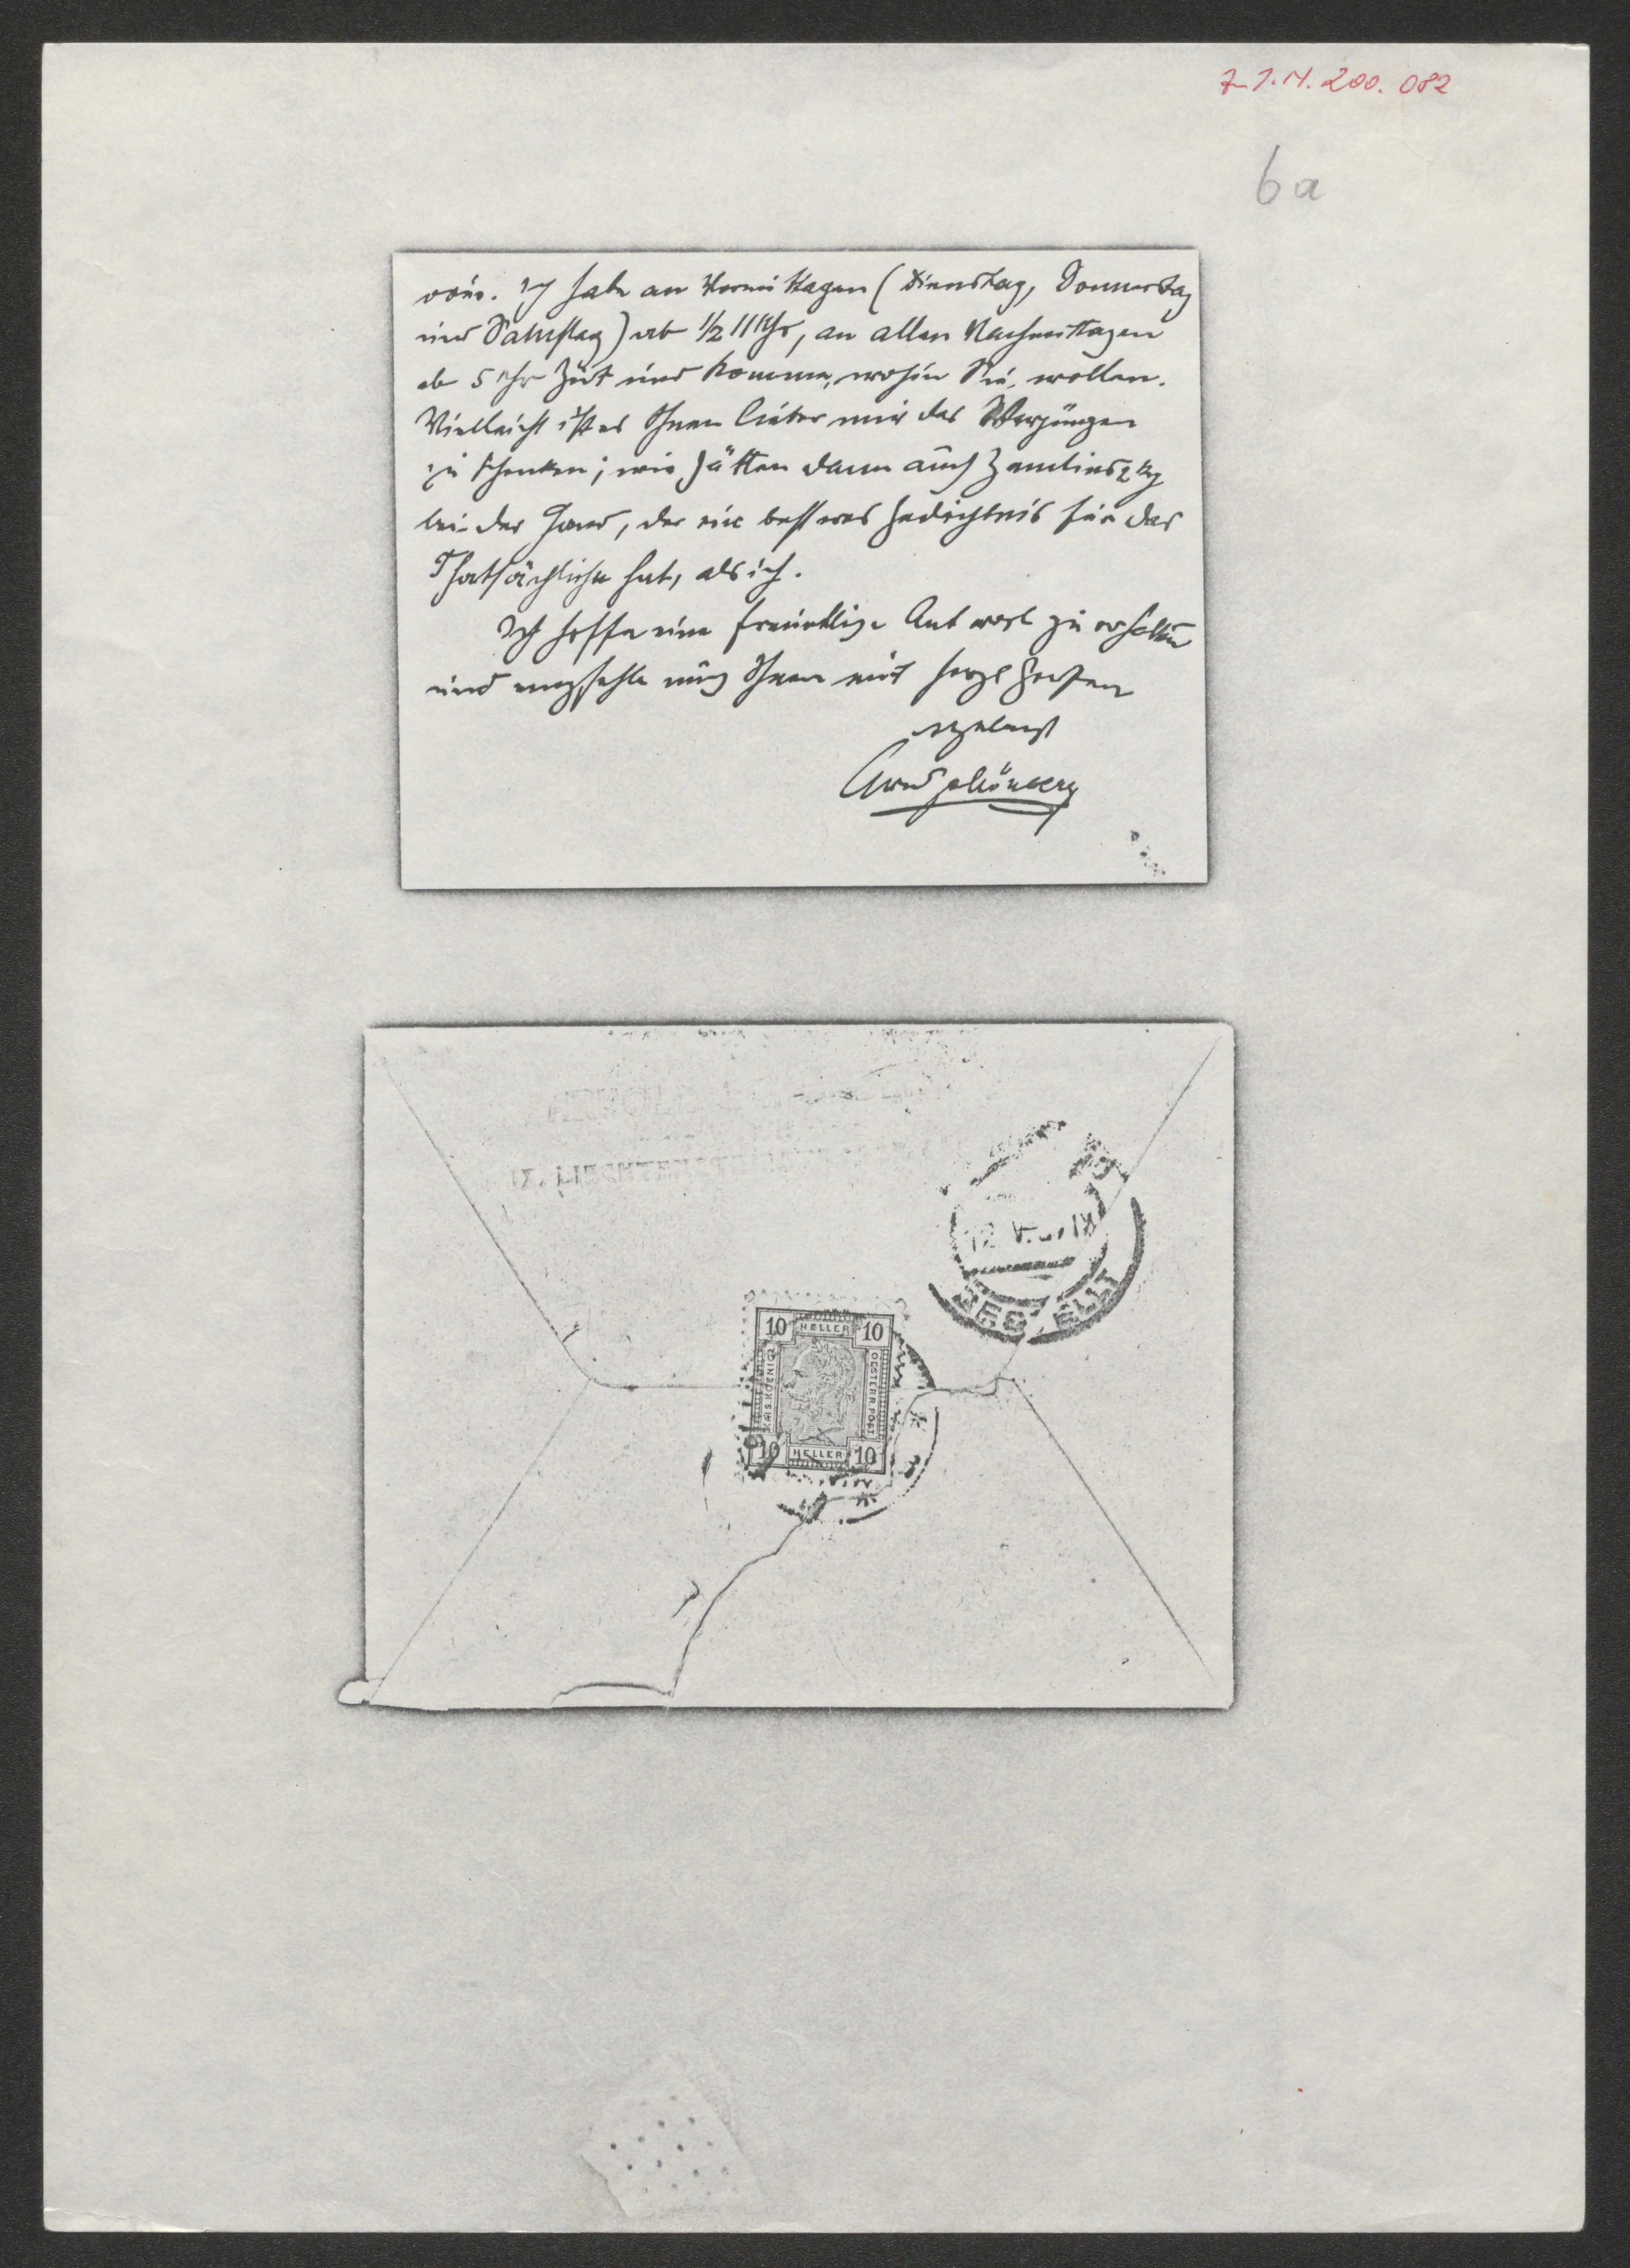 Z.I.N. 200.082
6a
wäre. Ich habe an Vormittagen (Dienstag, Donnerstag
und Samstag) ab 1/2 11 Uhr, an allen Nachmittagen
ab 5 Uhr Zeit und komme, wohin Sie wollen.
Vielleicht ist es Ihnen lieber mir das Vergnügen
zu schenken; wir hätten dann auch Zemlinszky
bei der Hand, der ein besseres Gedächtnis für das
Thatsächliche hat, als ich.
Ich hoffe eine freundliche Antwort zu erhalten
und empfehle mich Ihnen mit herzl
ergebenst
Arnold Schönberg
12 V
BESTELLT
10 HELLER 10
KAIS. KOENIGL
OESTERR. POST
10 HELLER 10